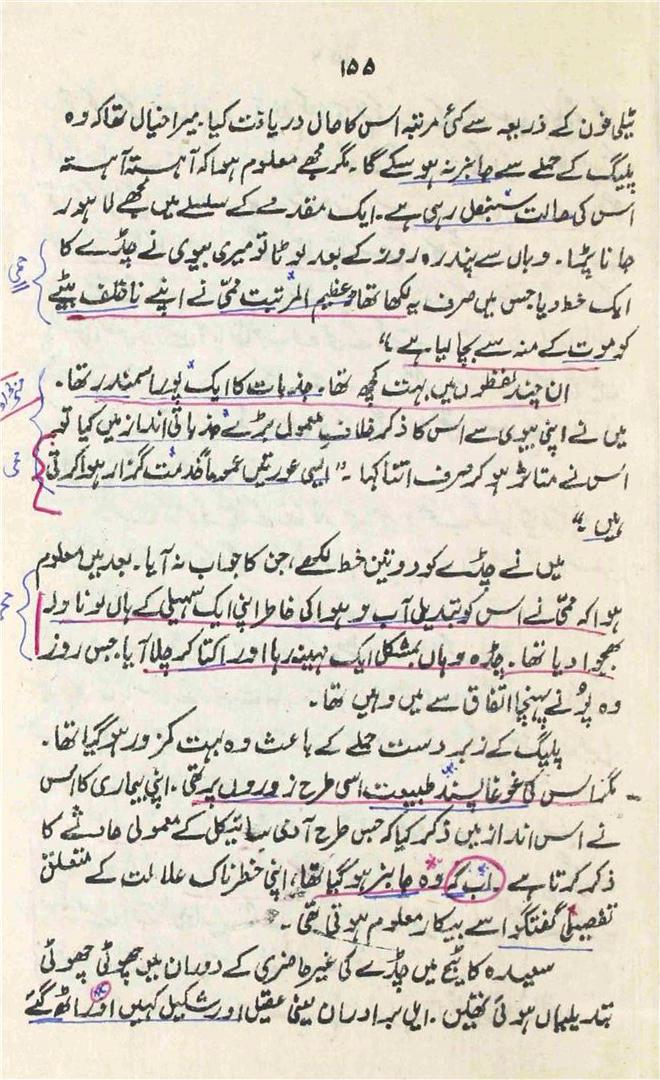 ۱۵۵
ٹیلی فون کے ذریعہ سے کئی مرتبہ اس کا حال دریافت کیا۔ میرا خیال تھا کہ وہ
پلیگ کے حملے سے جانبر نہ ہو سکے گا۔ مگر مجھے معلوم ہوا کہ آہستہ آہستہ
اس کی حالت سنبھل رہی ہے۔ ایک مقدمے کے سلسلے میں مجھے لاہور
جانا پڑا۔ وہاں سے پندرہ روز کے بعد لوٹا تو میری بیوی نے چڈے کا
ایک خط دیا جس میں صرف یہ لکھا تھا عظیم المرتبت ممی نے اپنے ناخلف بیٹے
کو موت کے منہ سے بچا لیا ہے۔"
ان چند لفظوں میں بہت کچھ تھا۔ جذبات کا ایک پورا سمندر تھا۔
میں نے اپنی بیوی سے اس کا ذکر خلافِ معمول بڑے جذباتی انداز میں کیا تو
اس نے متاثر ہو کر صرف اتنا کہا۔" ایسی عورتیں عموماً خدمت گزار ہوا کرتی
ہیں۔"
میں نے چڈے کو دو تین خط لکھے، جن کا جواب نہ آیا۔ بعد میں معلوم
ہوا کہ ممی نے اس کو تبدیلی آب و ہوا کی خاطر اپنی ایک سہیلی کے ہاں لوناولہ
بھجوا دیا تھا۔ چڈہ وہاں بمشکل ایک مہینہ رہا اور اکتا کر چلا آیا۔ جس روز
وہ پُونے پہنچا اتفاق سے میں وہیں تھا۔
پلیگ کے زبردست حملے کے باعث وہ بہت کمزور ہو گیا تھا۔
مگر اس کی غوغا پسند طبیعت اسی طرح زوروں پر تھی۔ اپنی بیماری کا اس
نے اس انداز میں ذکر کیا کہ جس طرح آدمی سائیکل کے معمولی حادثے کا
ذکر کرتا ہے۔ اب کہ وہ جانبر ہو گیا تھا، اپنی خطرناک علالت کے متعلق
تفصیلی گفتگو اسے بیکار معلوم ہوتی تھی۔
سعیدہ کاٹیج میں چڈے کی غیر حاضری کے دوران میں چھوٹی چھوٹی
تبدیلیاں ہوئی تھیں۔ ایل برادران یعنی عقیل اور شکیل کہیں اور اٹھ گئے